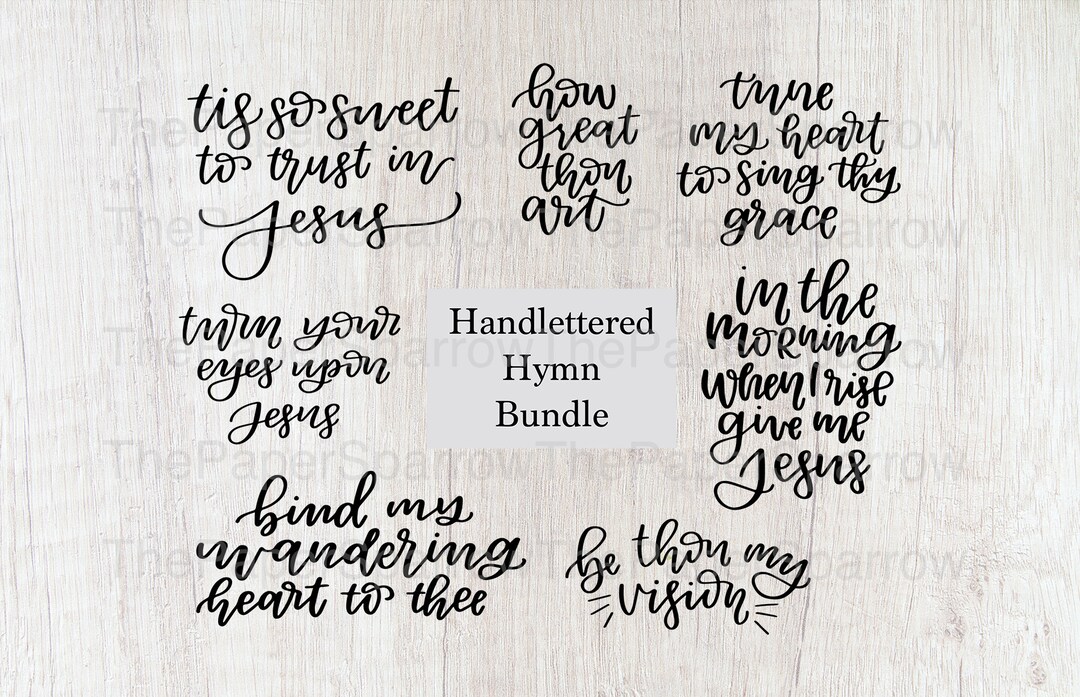 tis so sweet
to trust in
Jesus
how
great
thou
art
tune
my heart
to sing thy
grace
turn your
eyes upon
Jesus
Handlettered
Hymn
Bundle
in the
morning
when I rise
give me
Jesus
bind my
wandering
heart to thee
be thou my
vision
ThePaperSparrow ThePaperSparrow
ThePaperSparrow ThePaperSparrow
ThePaperSparrow ThePaperSparrow
ThePaperSparrow ThePaperSparrow
ThePaperSparrow ThePaperSparrow